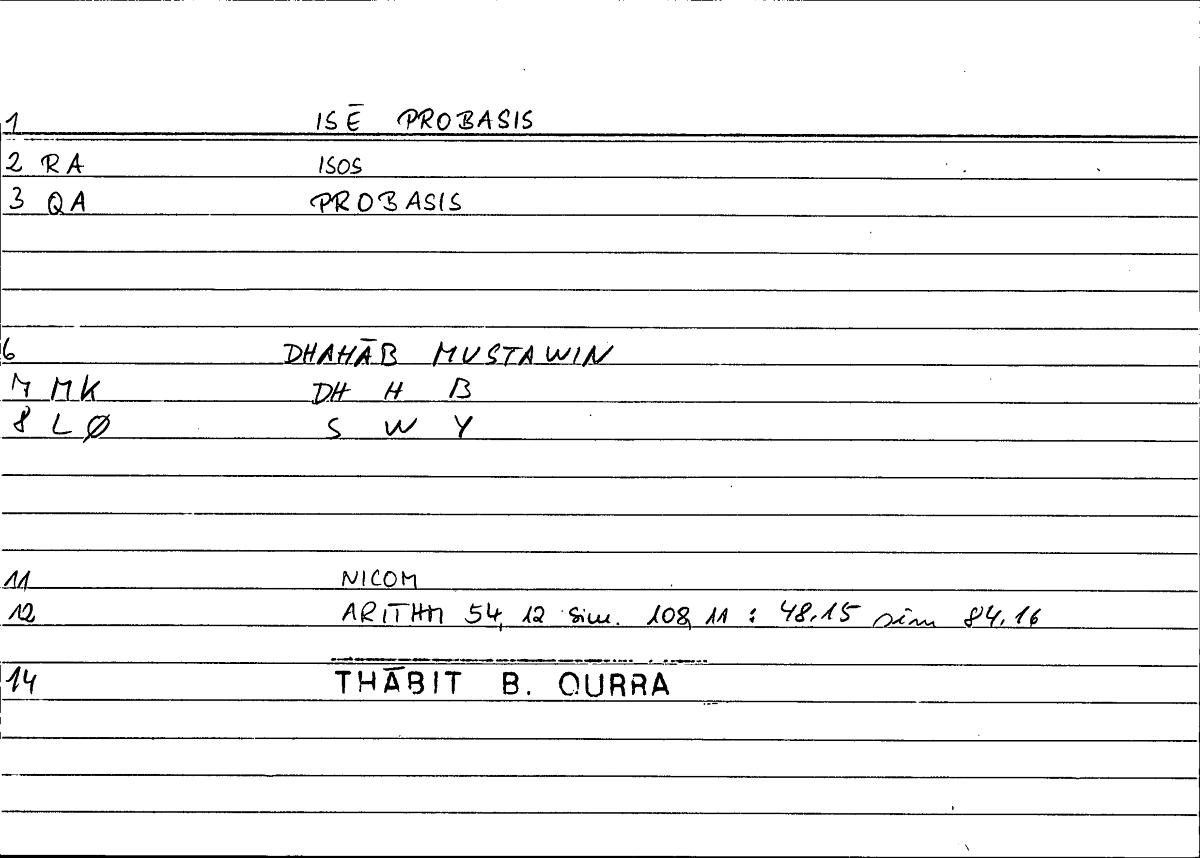 1 ISĒ PROBASIS
2 RA ISOS
3 QA PROBASIS
6 DHAHĀB MUSTAWIN
7 MK DH H B
8 LØ S W Y
11 NICOM
12 ARITHM 54, 12 sim. 108, 11 : 48.15 sim 84.16
14 THĀBIT B. QURRA